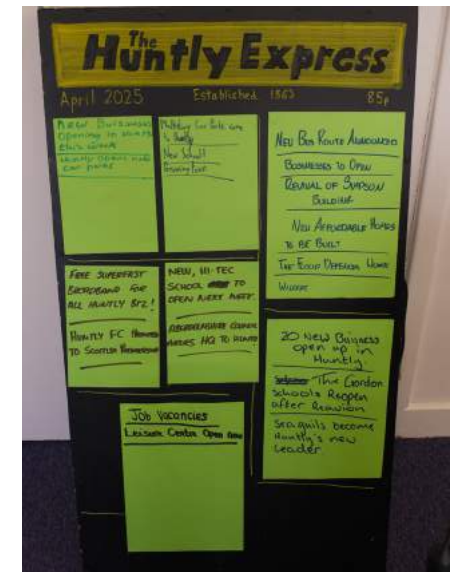 The
Huntly Express
April 2025 Established 1863 85p
New Buisness
Opening in Huntly
this week
Huntly Opens new
car parks
New School!
New Bus Route Announced
Businesses to Open
Revival of Simpson
Building
New Affordable Homes
to be Built
Free Superfast
Broadband for
all Huntly Biz!
Huntly FC
to Scottish Premiership
New, Hi-Tec
School to
open next week.
Aberdeenshire Council
moves HQ to Huntly
20 New Buisness
open up in
Huntly.
The Gordon
schools Reopen
after Reunion
Seagulls become
Huntly's new
Leader
Job Vacancies
Leisure Center Open now